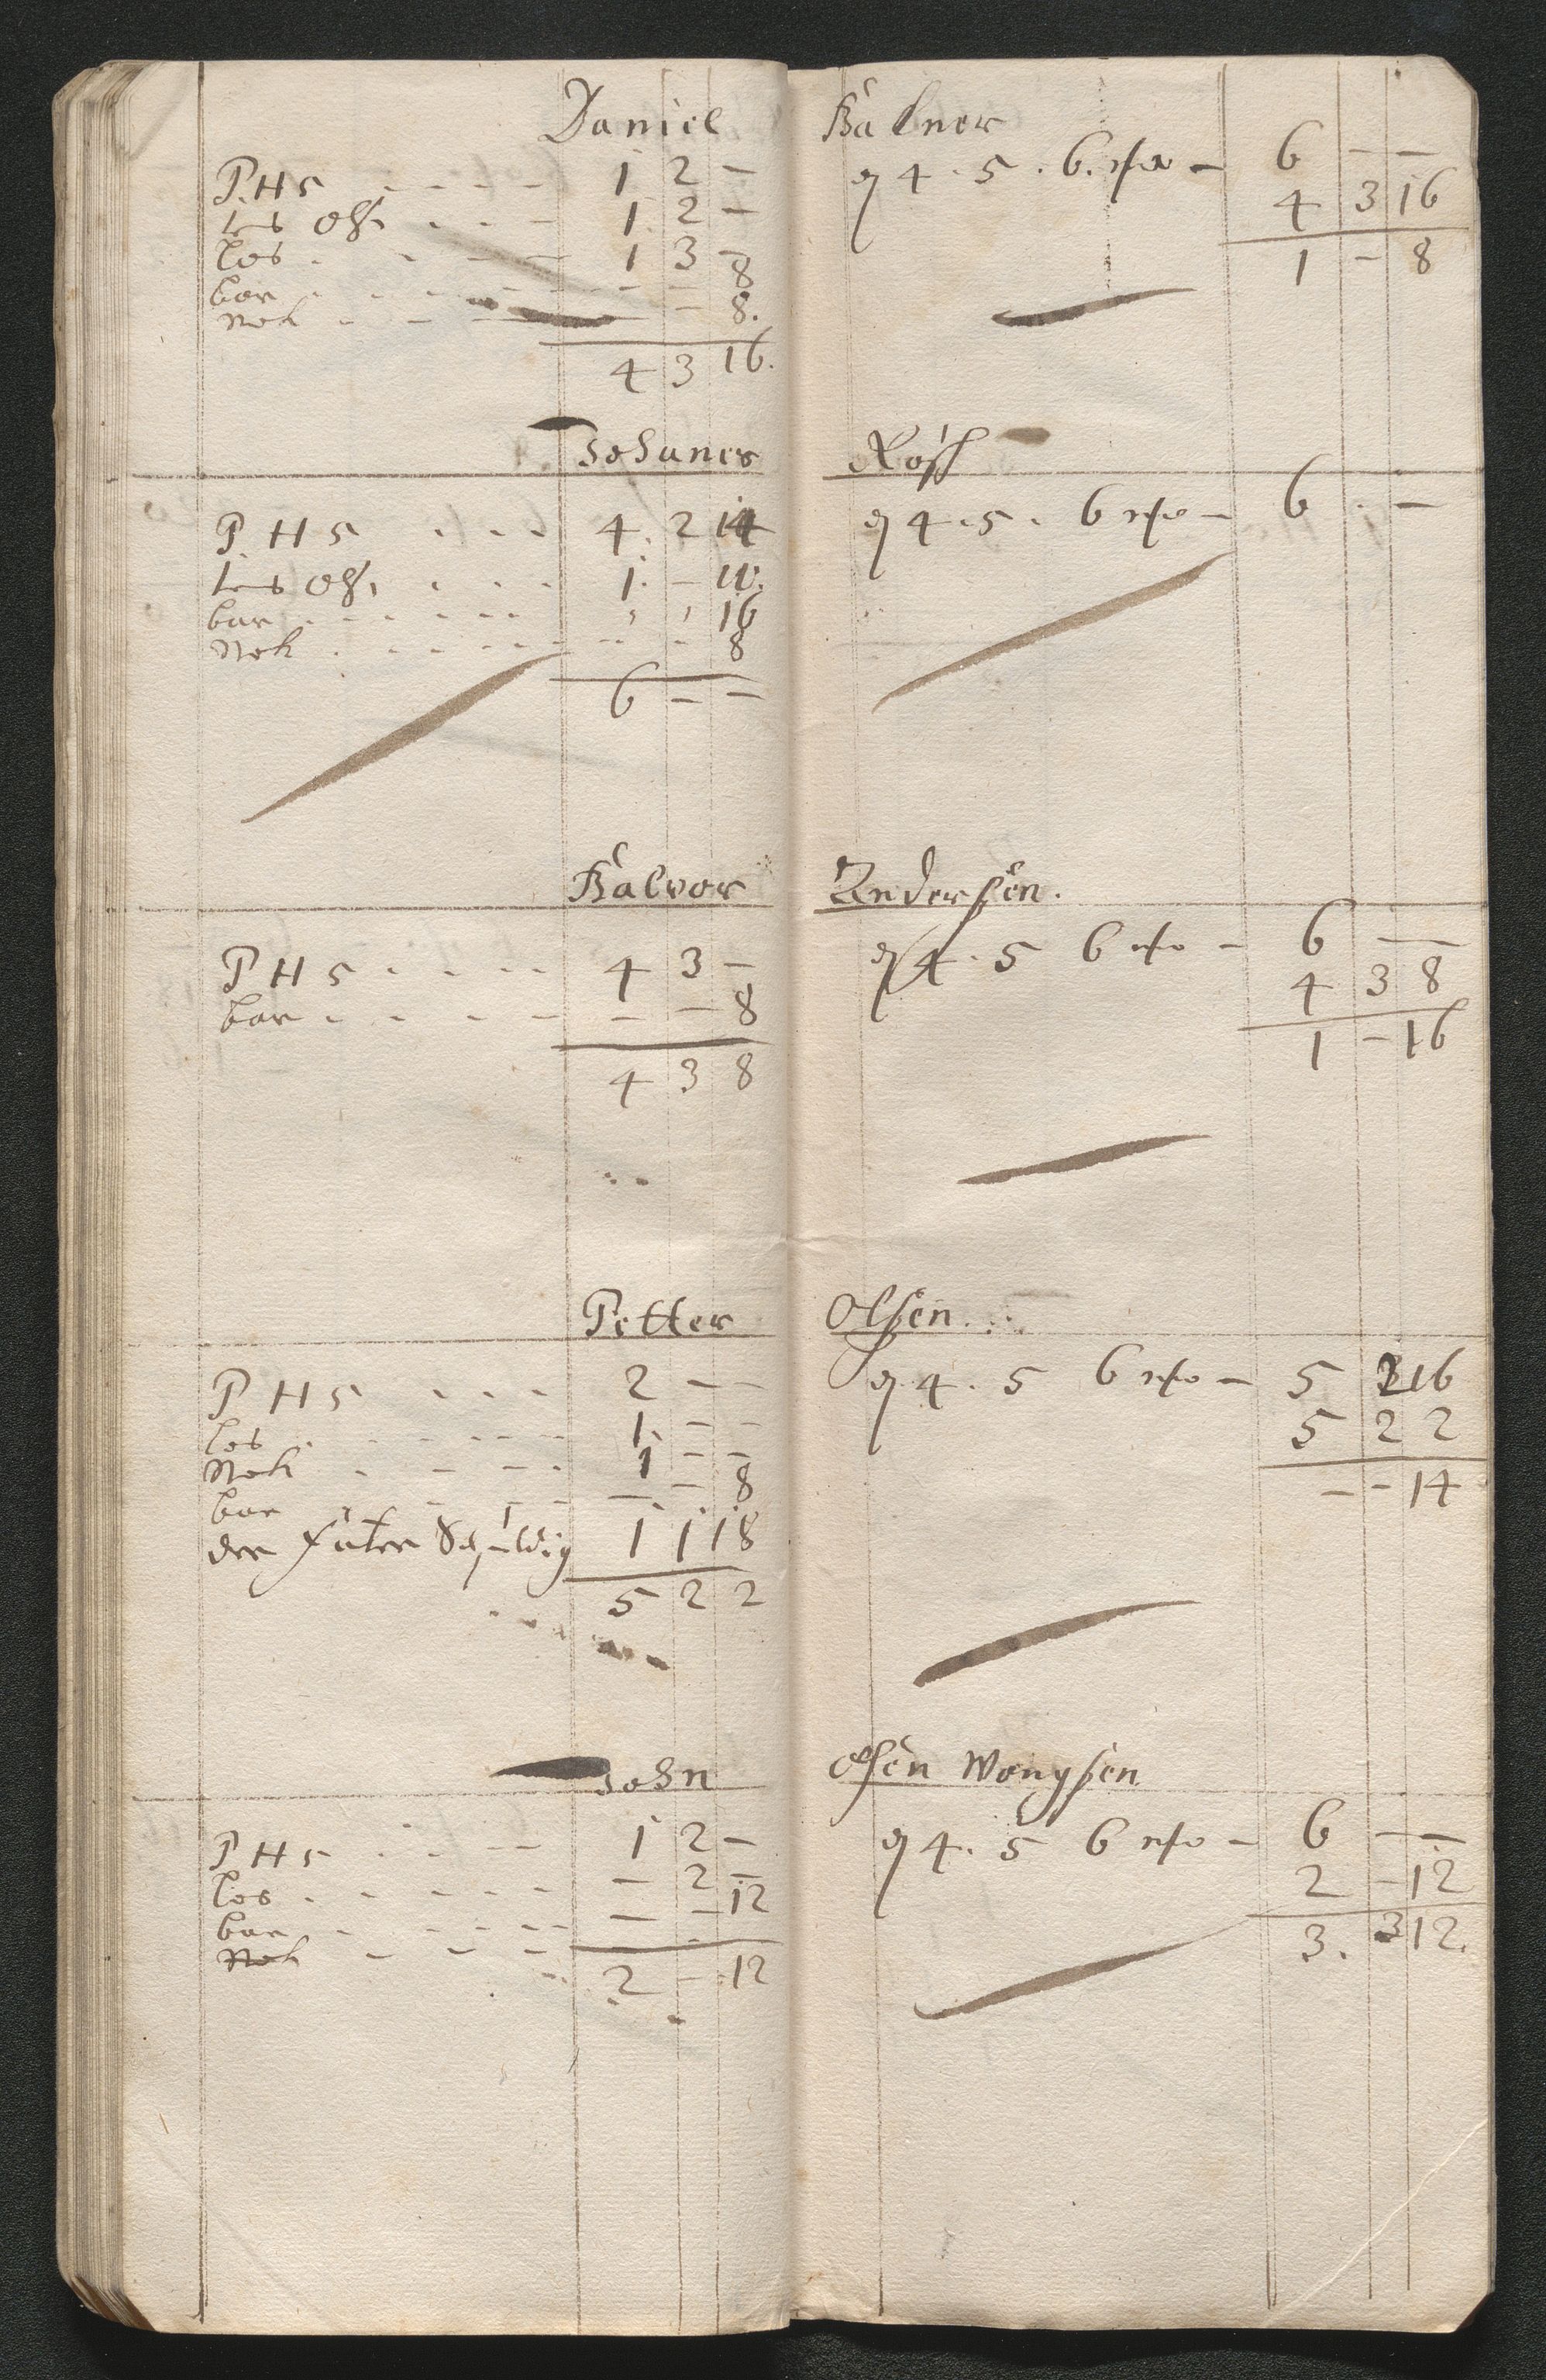 Daniel Halner
P.H.S 1 2 –
1 2 –
los 1 3 –
bar – – 8
Noch – – 8.
4 3 16.
4. 5. 6. 6 – –
4 3 16
1 – 8
Johanes
P. H S 4. 2 14
1. – 10.
bar 16
Noch 8
6 – –
4. 5. 6 6 –
Halvor Anderßen.
P H S 4 3 –
bar – – 8
4 3 8
4. 5 6 6 –
4 3 8
1 – 16
Petter Olßen.
P H S 2 – –
los 1. – –
Noch 1 – –
bar – – 8
der Schuldig 1 1 18
5 2 2
4. 5 6 5 2 16
5 2 2
– – 14
John
P H S 1 2 –
los – 2 –
bar – – 12
Noch
2 – 12
4. 5 6 6 –
2 – 12
3. 3 12.